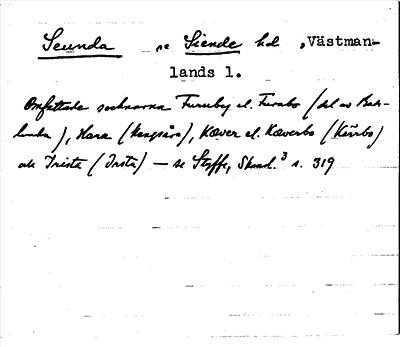 Seunda se Siende hd , Västman-
lands l.
Omfattade socknarna Turnby el. Turnbo (del av Bad-
lunda), Hara (Kungsåra), Kæver el. Kæverbo (Kärrbo)
och Irista (Irsta) — se Styffe, Skand.³ s. 319